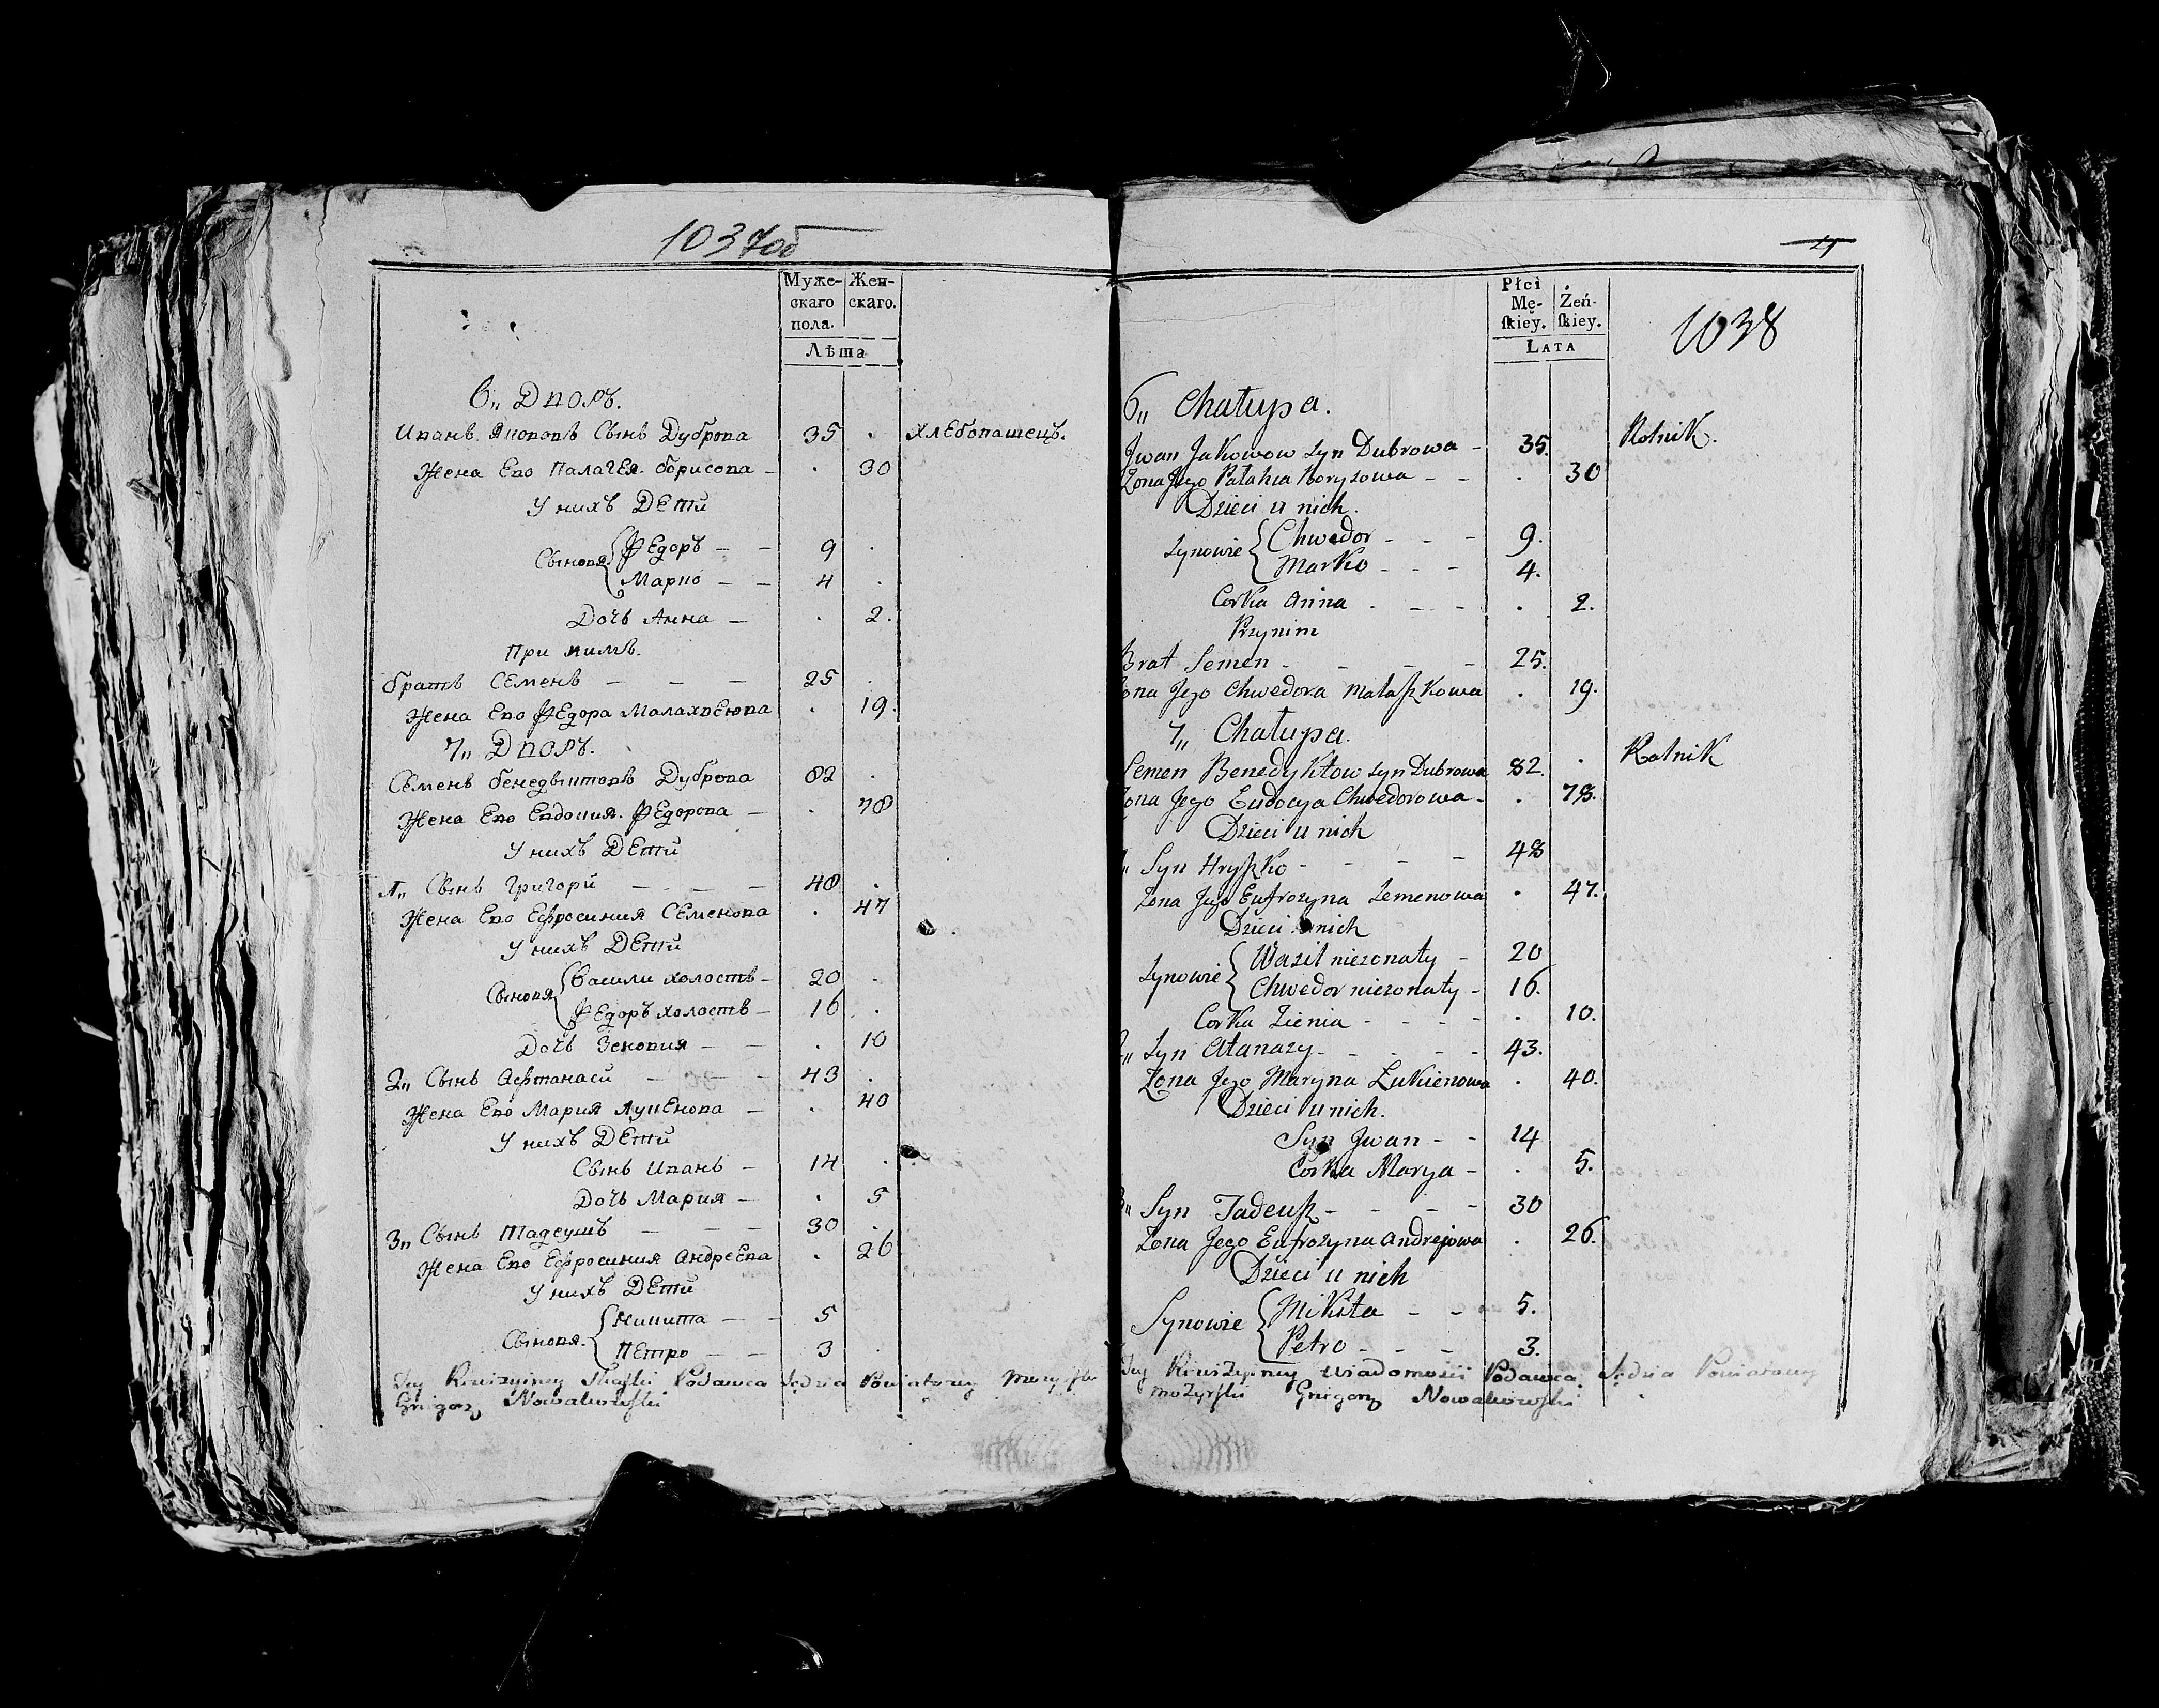 1037об
Муже-
скаго
пола.
Жен-
скаго.
Лѣта
6„ Дворъ.
Иванъ Якововъ Сынъ Дуброва 35 . хлебопашецъ.
Жена Ево Палагея Борисова — . 30
У нихъ Дети
Сыновя { Федоръ — — 9 .
Марко — — 4 .
Дочь Анна — . 2.
При нимъ.
братъ Семенъ — — — 25 .
Жена Ево Федора Малахвеюва . 19.
7„ Дворъ.
Семенъ бенедыктовъ Дуброва 82 .
Жена Ево Евдокия Федорова — . 78
У нихъ Дети
1„ Сынъ Григори — — — 48 .
Жена Ево Ефросиния Семенова . 47
У нихъ Дети
Сыновя { Васили холостъ — 20 .
Федоръ холостъ — 16 .
Дочь Зеновия — — . 10
2„ Сынъ Афтанаси — — — 43 .
Жена Ево Мария Лукенова — . 40
У нихъ Дети
Сынъ Иванъ — 14 .
Дочь Мария — . 5
3„ Сынъ Тадеушъ — — — 30 .
Жена Ево Ефросиния Андреева . 26
У нихъ Дети
Сыновя { Никита — — 5
Петро — — 3 .
Podawca Sędzia Powiatowy
Grigorz Nowakowski
4
Płci
Mę-
skiey.
Żeń-
skiey.
Lata
1038
6„ Chałupa.
Jwan Jakowow syn Dubrowa - 35. Rolnik.
Zona Jego Pałahia Boryzowa - - . 30
Dzieci u nich.
Synowie { Chwedor - - - 9.
Marko - - - 4.
Corka Anna - - - . 2.
Przynim
Brat Semen - - - - 25.
Zona Jego Chwedora Małaszkowa . 19.
7„ Chałupa.
Semen Benedyktow syn Dubrowa 82. . Rolnik
Zona Jego Eudocya Chwedorowa - . 78.
Dzieci u nich
1„ Syn Hryszko - - - - 48
Zona Jego Eufrozyna Semenowa . 47.
Dzieci u nich
Synowie { Wasil niezonaty - 20
Chwedor niezonaty - 16.
Corka Zienia - - - - . 10.
2„ Syn Atanazy - - - - 43.
Zona Jego Maryna Łukienowa . 40.
Dzieci u nich.
Syn Jwan - - 14
Corka Marya - . 5.
3„ Syn Tadeusz - - - - 30
Zona Jego Eufrozyna Andrejowa . 26.
Dzieci u nich
Synowie { Mikita - - 5.
Petro - - - 3.
wiadomości Podawca Sędzia Powiatowy
Mozyrski Grigorz Nowakowski